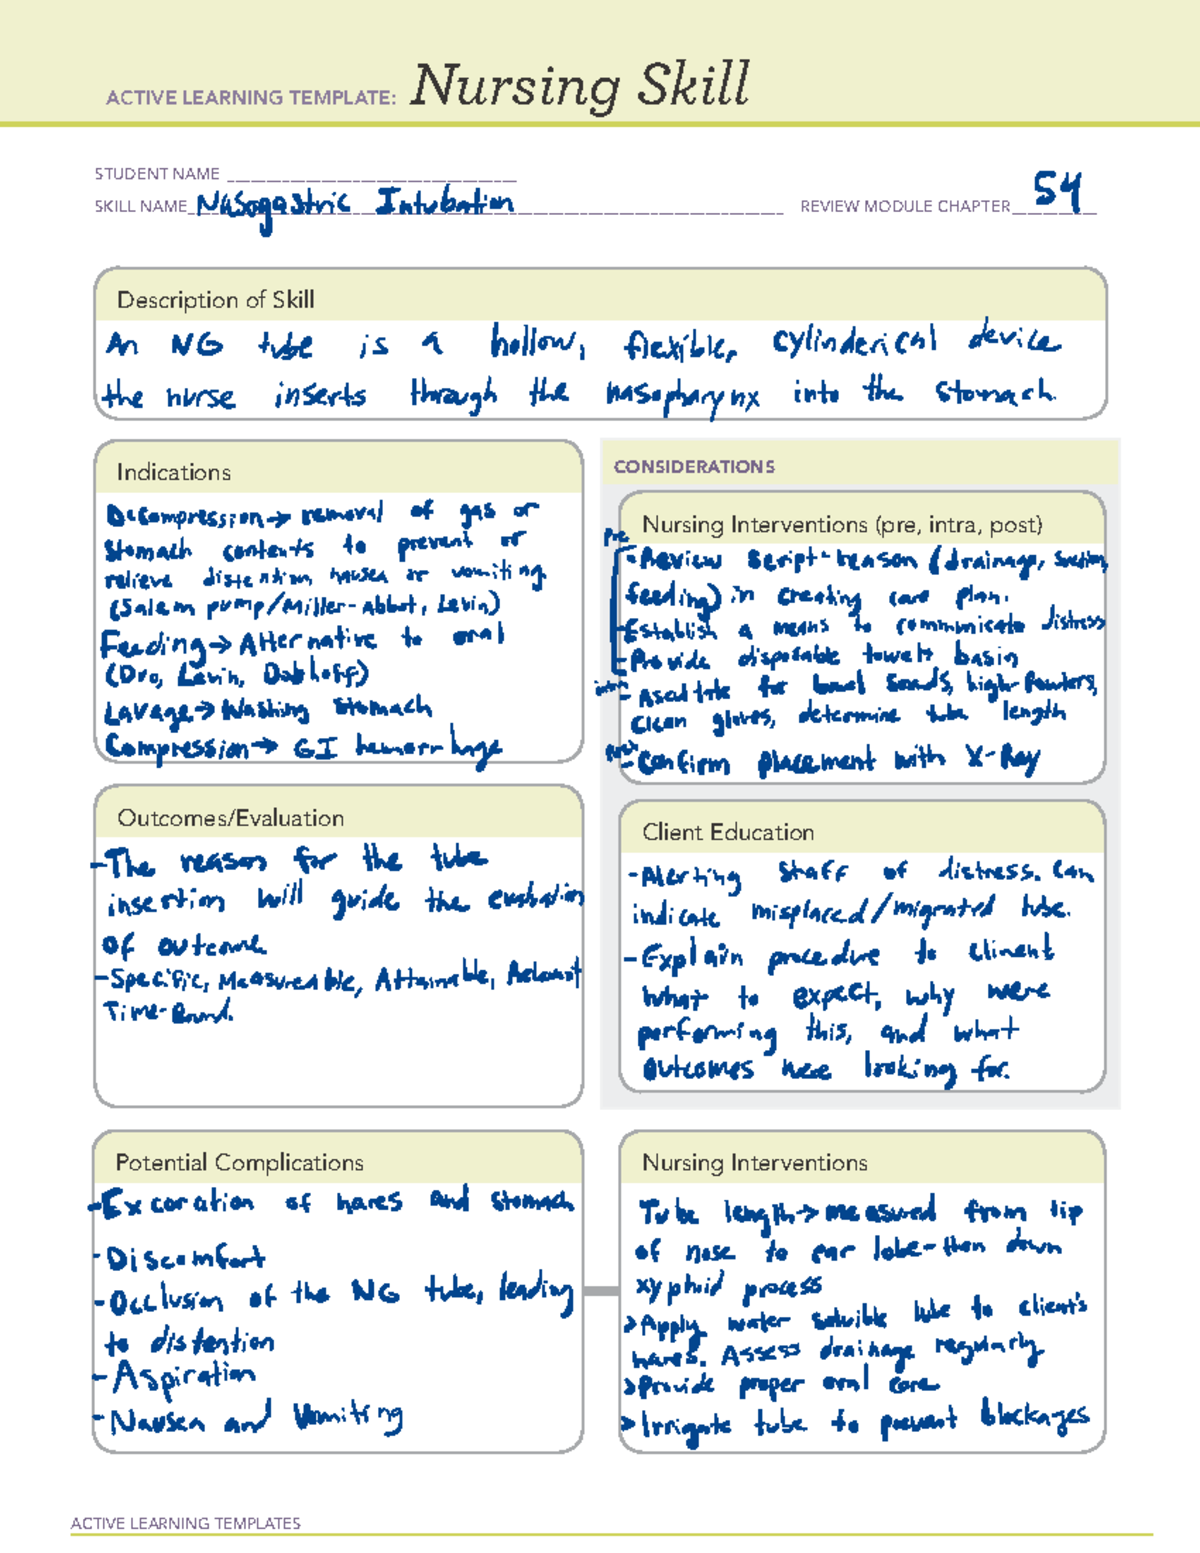 ACTIVE LEARNING TEMPLATE: Nursing Skill
STUDENT NAME
SKILL NAME Nasogastric Intubation REVIEW MODULE CHAPTER 54
Description of Skill
An NG tube is a hollow, flexible, cylinderical device
the nurse inserts through the nasopharynx into the stomach.
Indications
Decompression → removal of gas or
stomach contents to prevent or
relieve distention, nausea or vomiting
(Salem pump/Miller-Abbot, Levin)
Feeding → Alternative to oral
(Duo, Levin, Dobhoff)
Lavage → Washing stomach
Compression → GI hemorrhage
CONSIDERATIONS
Nursing Interventions (pre, intra, post)
Pre
- Review script - reason (drainage, suction,
feeding) in creating care plan.
- Establish a means to communicate distress
- Provide disposable towels basin
intra - Ascultate for bowel sounds, high-fowlers,
clean gloves, determine tube length
post - Confirm placement with X-Ray
Outcomes/Evaluation
- The reason for the tube
insertion will guide the evaluation
of outcome
- Specific, Measureable, Attainable, Relevant
Time-Bound.
Client Education
- Alerting staff of distress. Can
indicate misplaced/migrated tube.
- Explain procedure to climent
what to expect, why were
performing this, and what
outcomes were looking for.
Potential Complications
- Excoration of nares and stomach
- Discomfort
- Occlusion of the NG tube, leading
to distention
- Aspiration
- Nausea and Vomiting
Nursing Interventions
Tube length → measured from tip
of nose to ear lobe - then down
xyphoid process
> Apply water soluible lube to client's
nares. Assess drainage regularly
> Provide proper oral care
> Irrigate tube to prevent blockages
ACTIVE LEARNING TEMPLATES